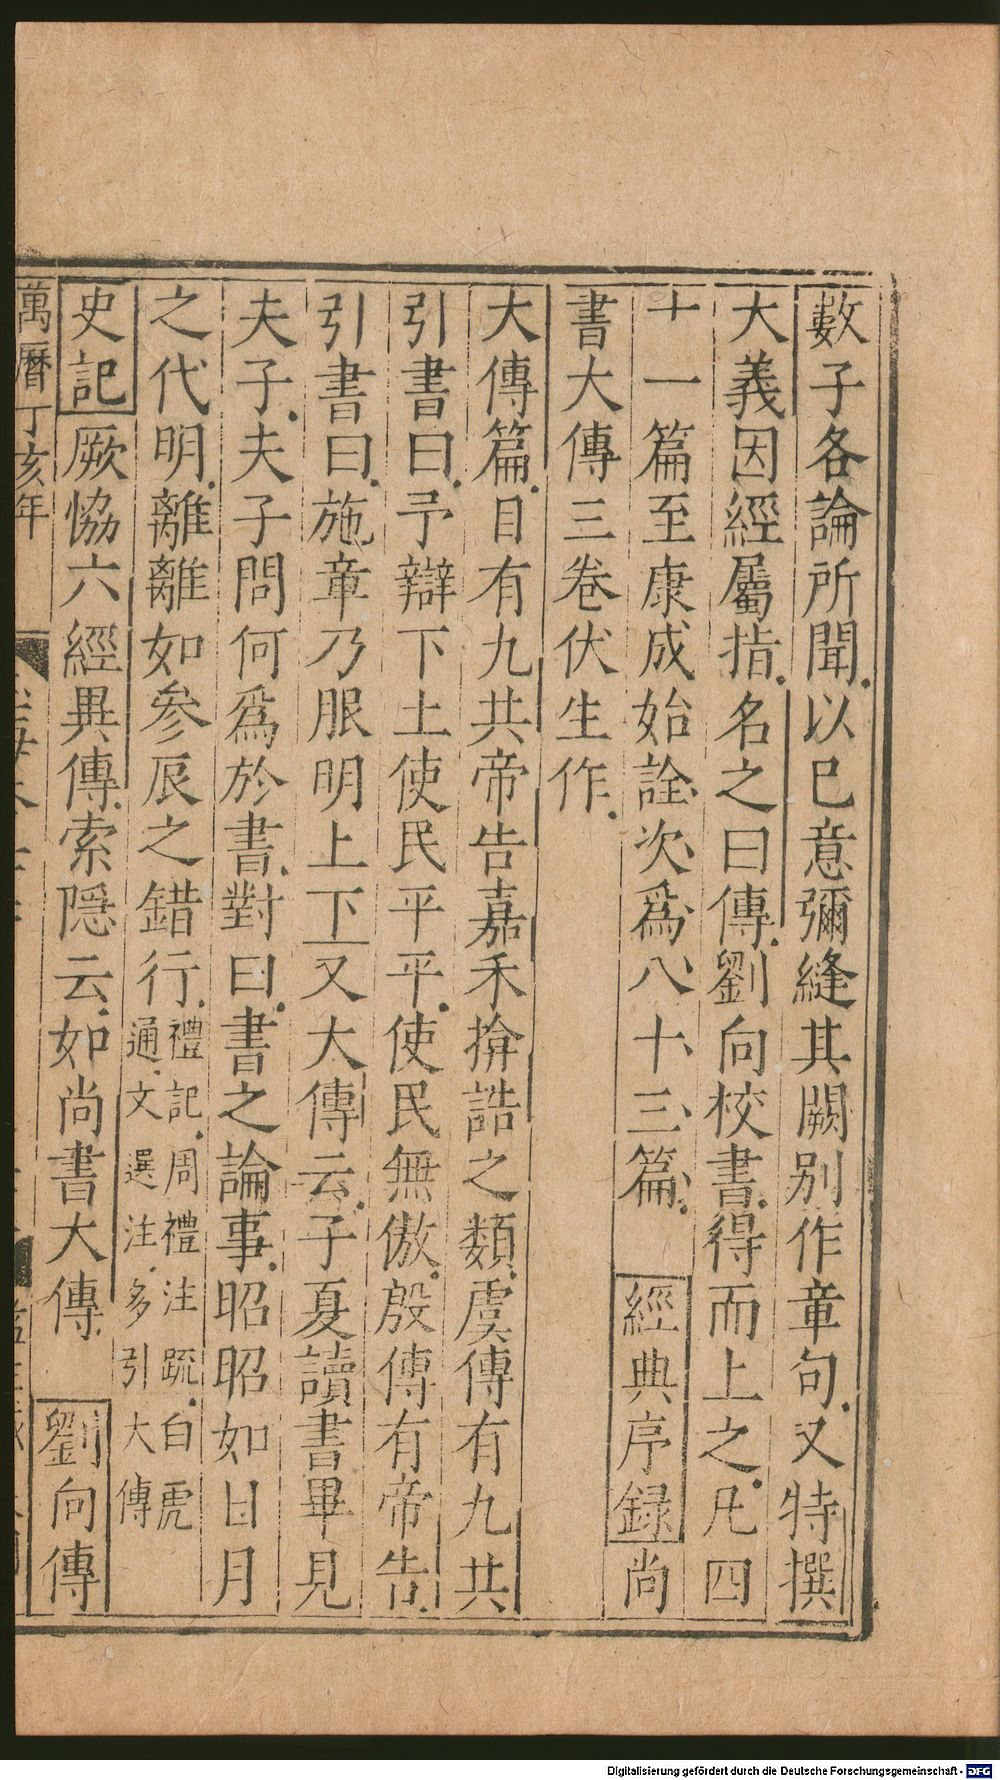 數子各論所聞以已意彌縫其闕別作章句又特撰
大義因經屬指名之曰傳劉向校書得而上之凡四
十一篇至康成始詮次爲八十三篇 經典序録尚
書大傳三卷伏生作
大傳篇目有九共帝告嘉禾揜誥之類虞傳有九共
引書曰予辯下土使民平平使民無傲殷傳有帝告
引書曰施章乃服明上下又大傳云子夏讀書畢見
夫子夫子問何爲於書對曰書之論事昭昭如日月
之代明離離如參辰之錯行禮記周禮注疏白虎
通文選注多引大傳
史記厥恊六經異傳索隱云如尚書大傳 劉向傳
萬曆丁亥年
Digitalisierung gefördert durch die Deutsche Forschungsgemeinschaft - DFG